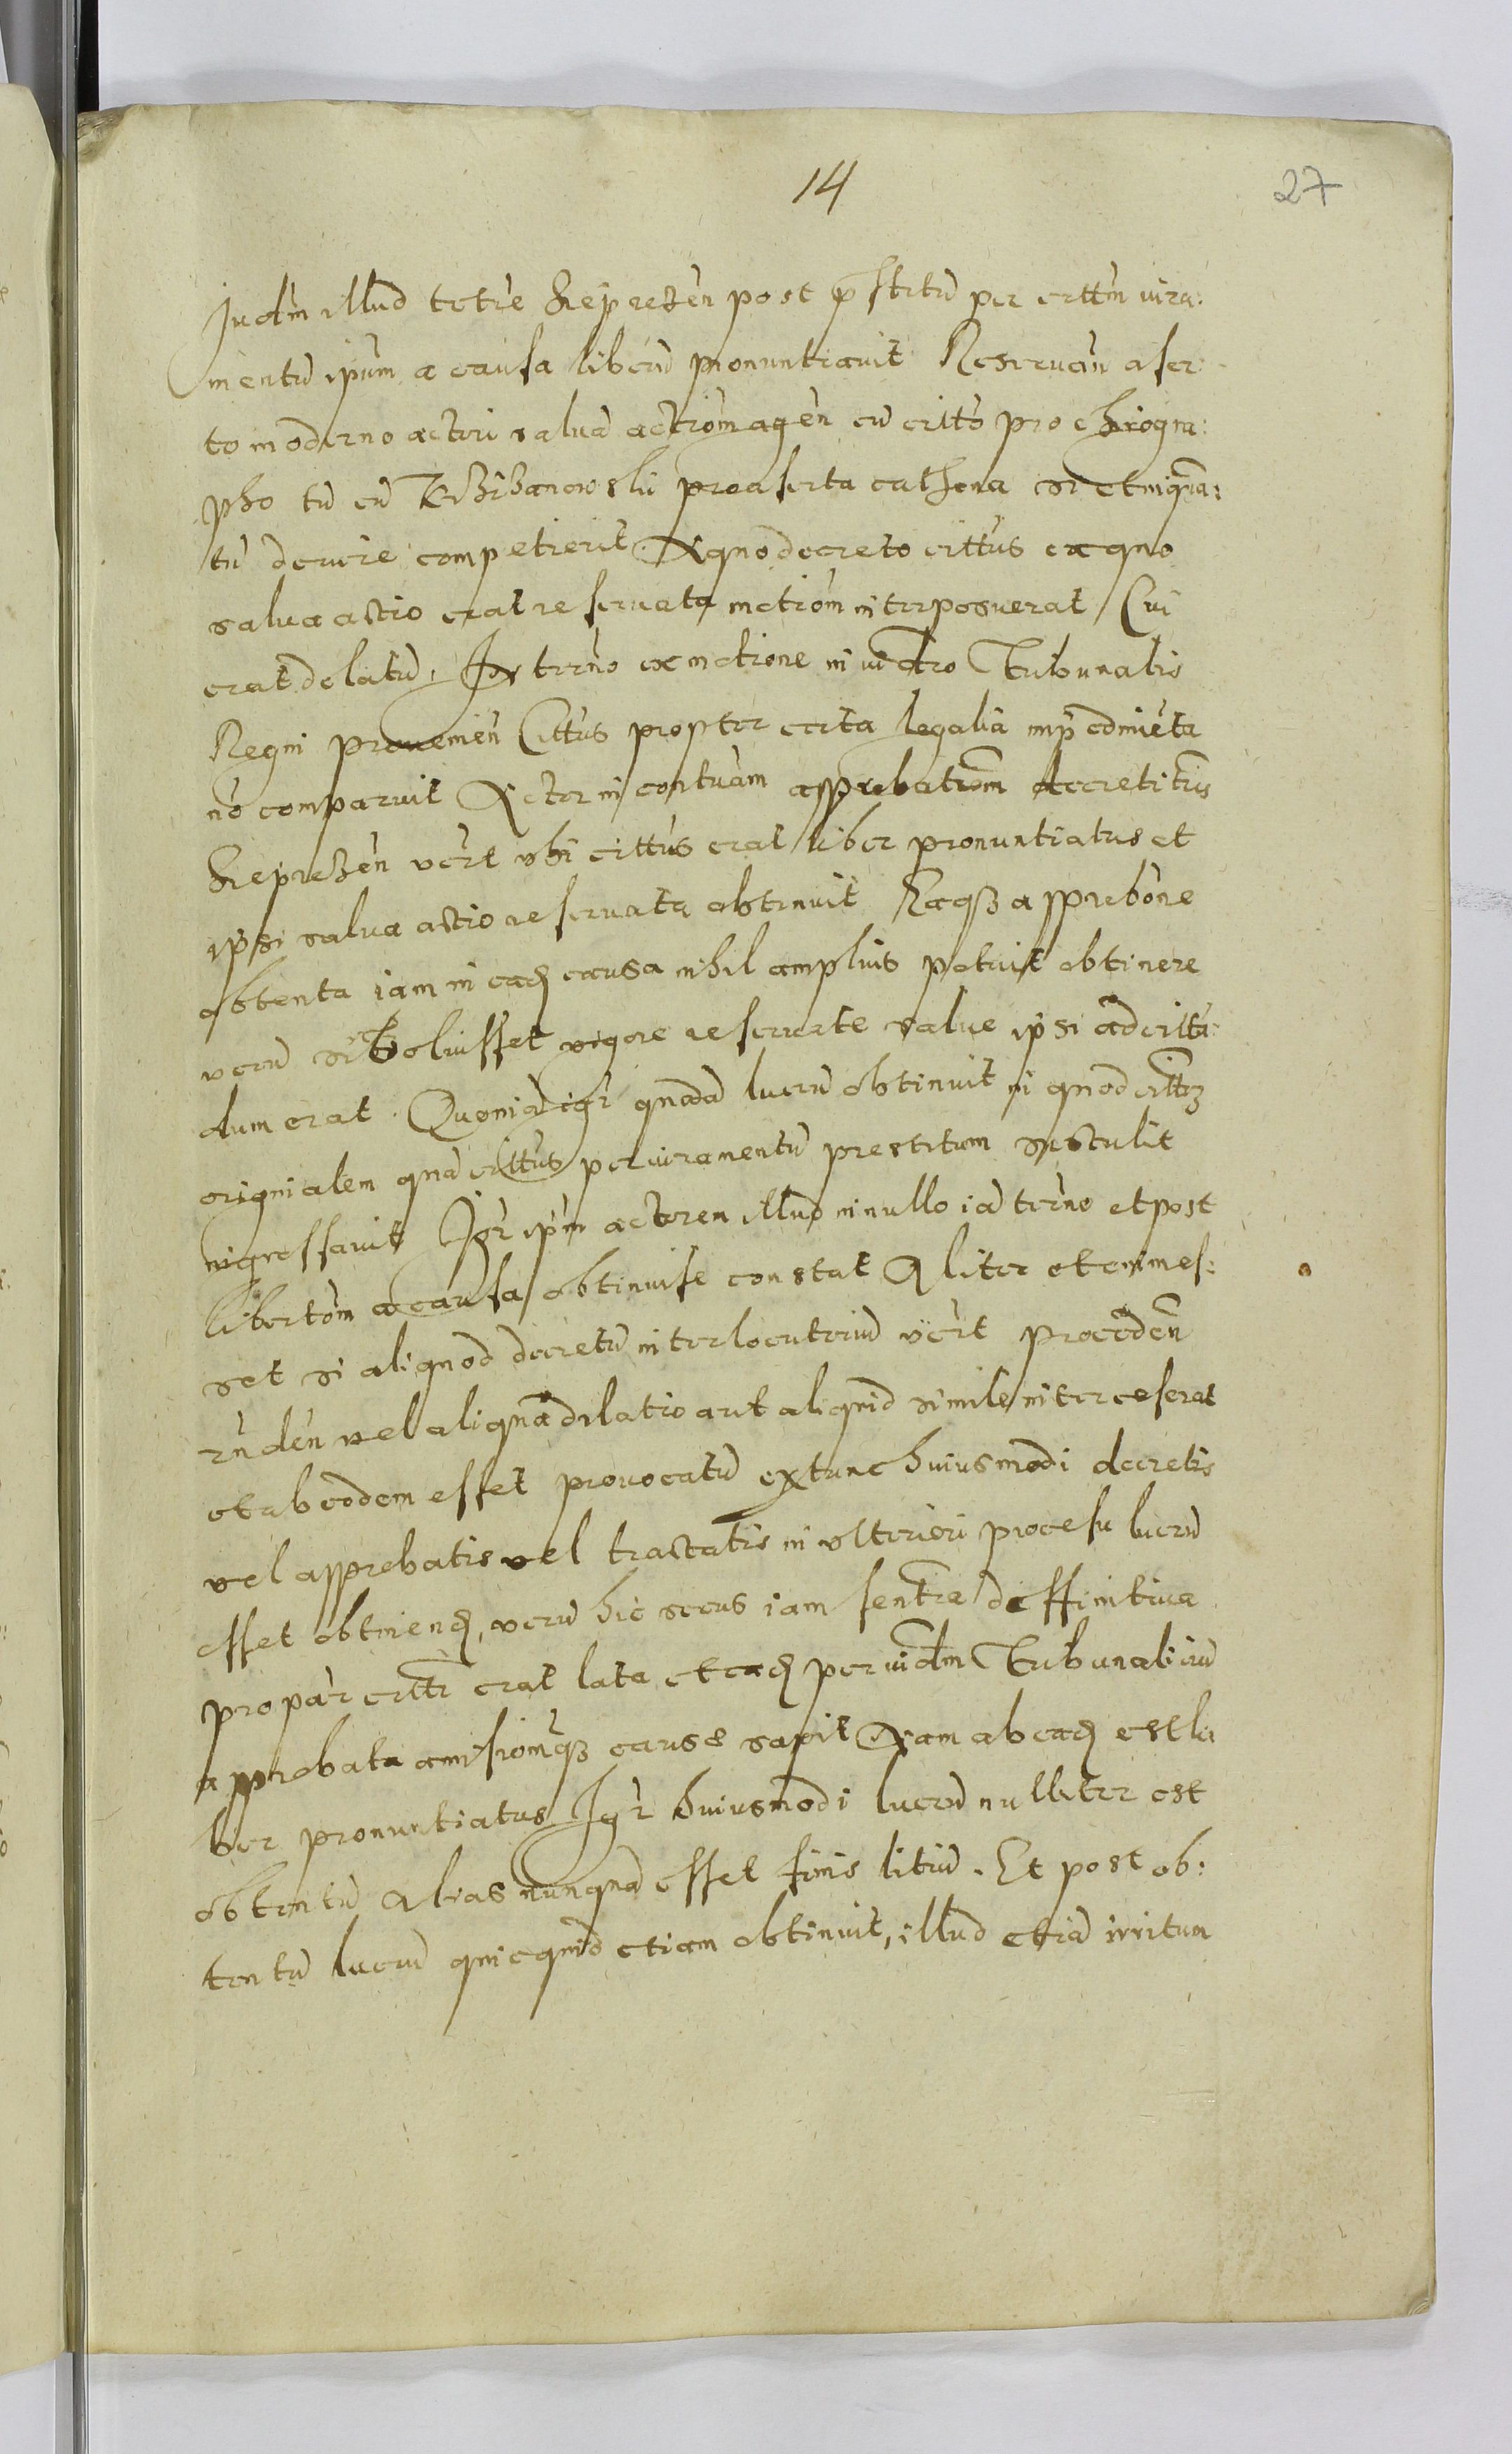 14
27
Judm illud tetre Hreprezen post pstitu per cittm iura:
mentu ipum a causa liberu pronuntiavit Reservan aser:
to moderno actori salva actiom agen cu citto pro chirogra:
pho tu cu Krzizanowski pro aserta cathena si et inqua:
tu de iure competierit A quo decreto cittus ex quo
salva actio erat reservata motiom interposuerat Cui
erat delatu. In terno ex motione in iudtio Tribunalis
Regni provenien Cittus propter certa legalia impedimeta
no comparuit Actor in contuam approbatiom decreti tris
Hreprezen vert ubi cittus erat liber pronuntiatus et
ipsi salva actio reservata obtinuit Eaqz approbone
obtenta iam in ead causa nihil amplius potuit obtinere
veru si voluisset vigore reservate salve ipsi ad citta:
dum erat. Quonia igr quada lucru obtinuit in quod cittoz
originalem qua cittus per iuramentu prestitum sustulit
ingrossavit Igr ipm actorem illud in nullo ia terno et post
libertom a causa obtinuise constat Aliter etenim es:
set si aliquod decretu interlocutoriu vert proceden
rnden vel aliqua dilatio aut aliquid simile interceserat
et ab eodem esset provocatu extunc huiusmodi decretis
vel approbatis vel tractatis in ulteriori procesu lucru
esset obtinend, veru hic secus iam sentia deffinitiva
pro par citti erat lata et ead per iudm Tribunaliciu
approbata amisiomqz cause sapit Nam ab ead est li
ber pronuntiatus Igr huiusmodi lucru nulliter est
obtentu alias nunqua esset finis litiu. Et post ob:
tentu lucru quicquid etiam obtinuit, illud etia irritum